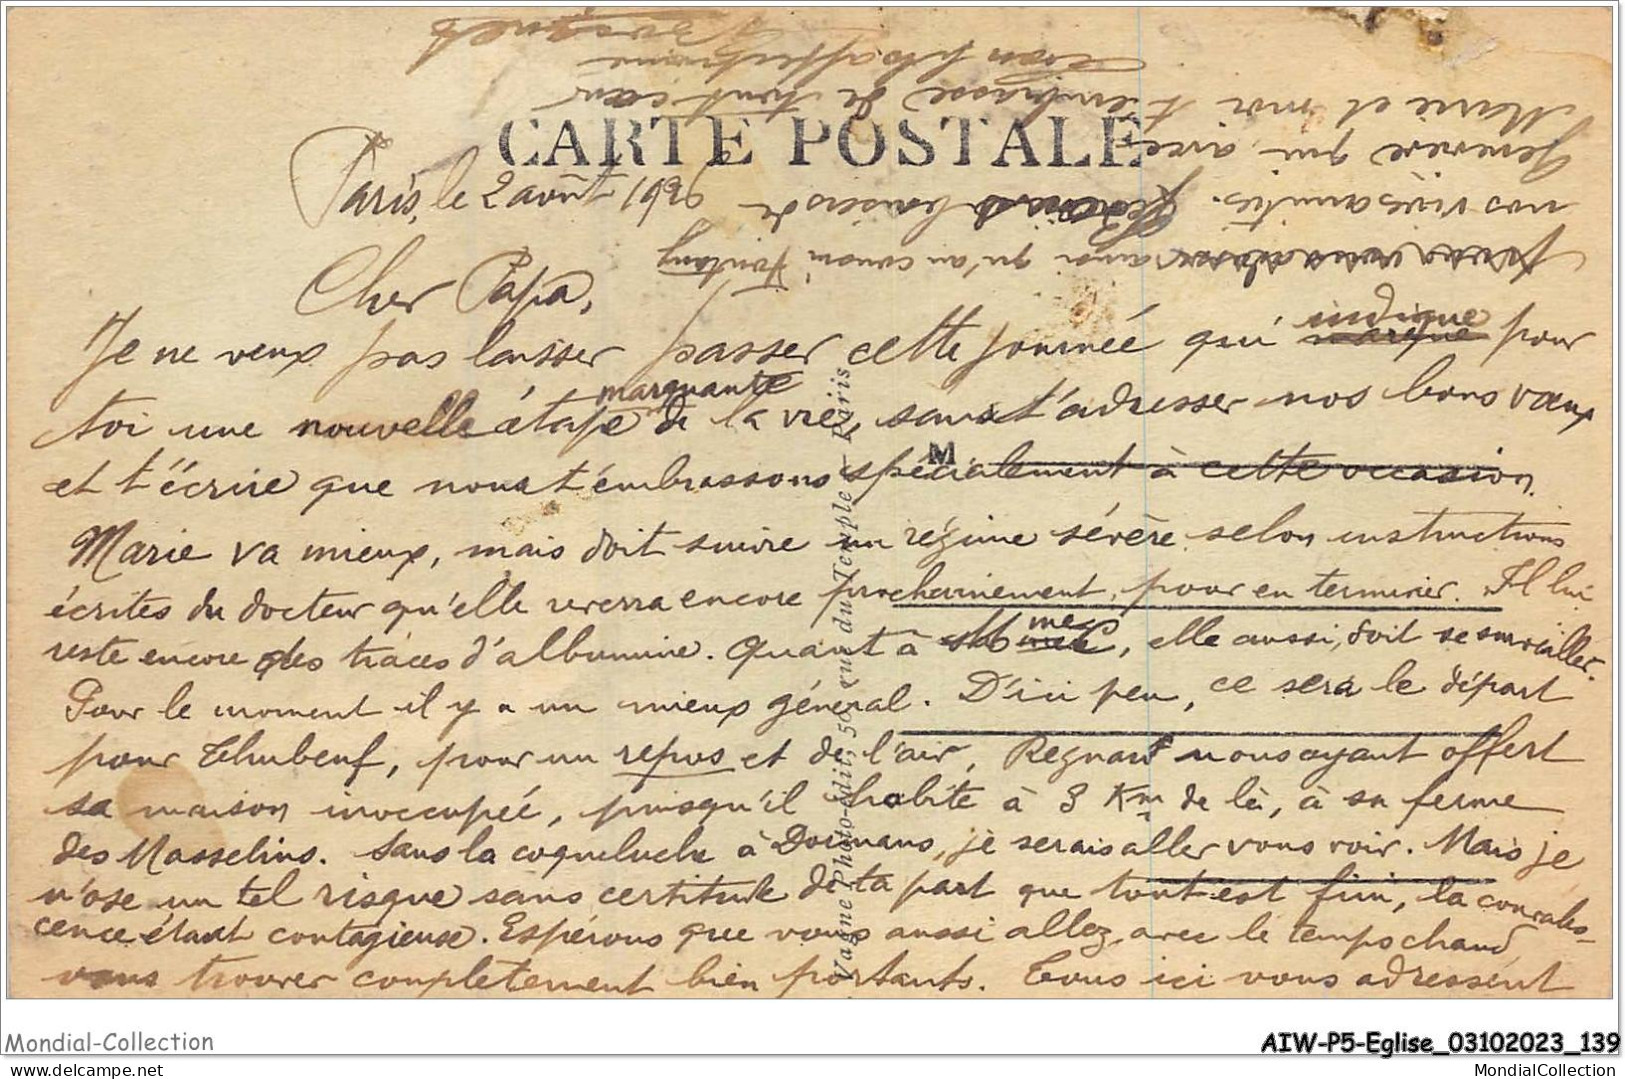 CARTE POSTALE
Paris, le 2 août 19
Cher Papa,
Je ne veux pas laisser passer cette journée qui indique pour
toi une nouvelle étape marquante de la vie, sans t'adresser nos bons vœux
et t'écrire que nous t'embrassons spécialement à cette occasion.
Marie va mieux, mais doit suivre un régime sévère selon instructions
écrites du docteur qu'elle reverra encore prochainement, pour en terminer. Il lui
reste encore des traces d'albumine. Quant à Mme C, elle aussi, doit se surveiller.
Pour le moment il y a un mieux général. D'ici peu, ce sera le départ
pour Thubeuf, pour un repos et de l'air, Regnard nous ayant offert
sa maison inoccupée, puisqu'il habite à 3 Km de là, à sa ferme
des Masselins. Sans la coqueluche à Dormans, je serais aller vous voir. Mais je
n'ose un tel risque sans certitude de ta part que tout est fini, la convales-
cence étant contagieuse. Espérons que vous aussi allez, avec le temps chaud
vous trouver complètement bien portants. Tous ici vous adressent
ainsi qu'au cousin
nos vives amitiés. baisers de
Geneviève qui, avec
Marie et moi t'embrasse de tout cœur
Ton fils affectionné
Vagné Photo-édit., 50 rue du Temple - Paris
M
Mondial-Collection
AIW-P5-Eglise_03102023_139
mondial-collection.net
MondialCollection